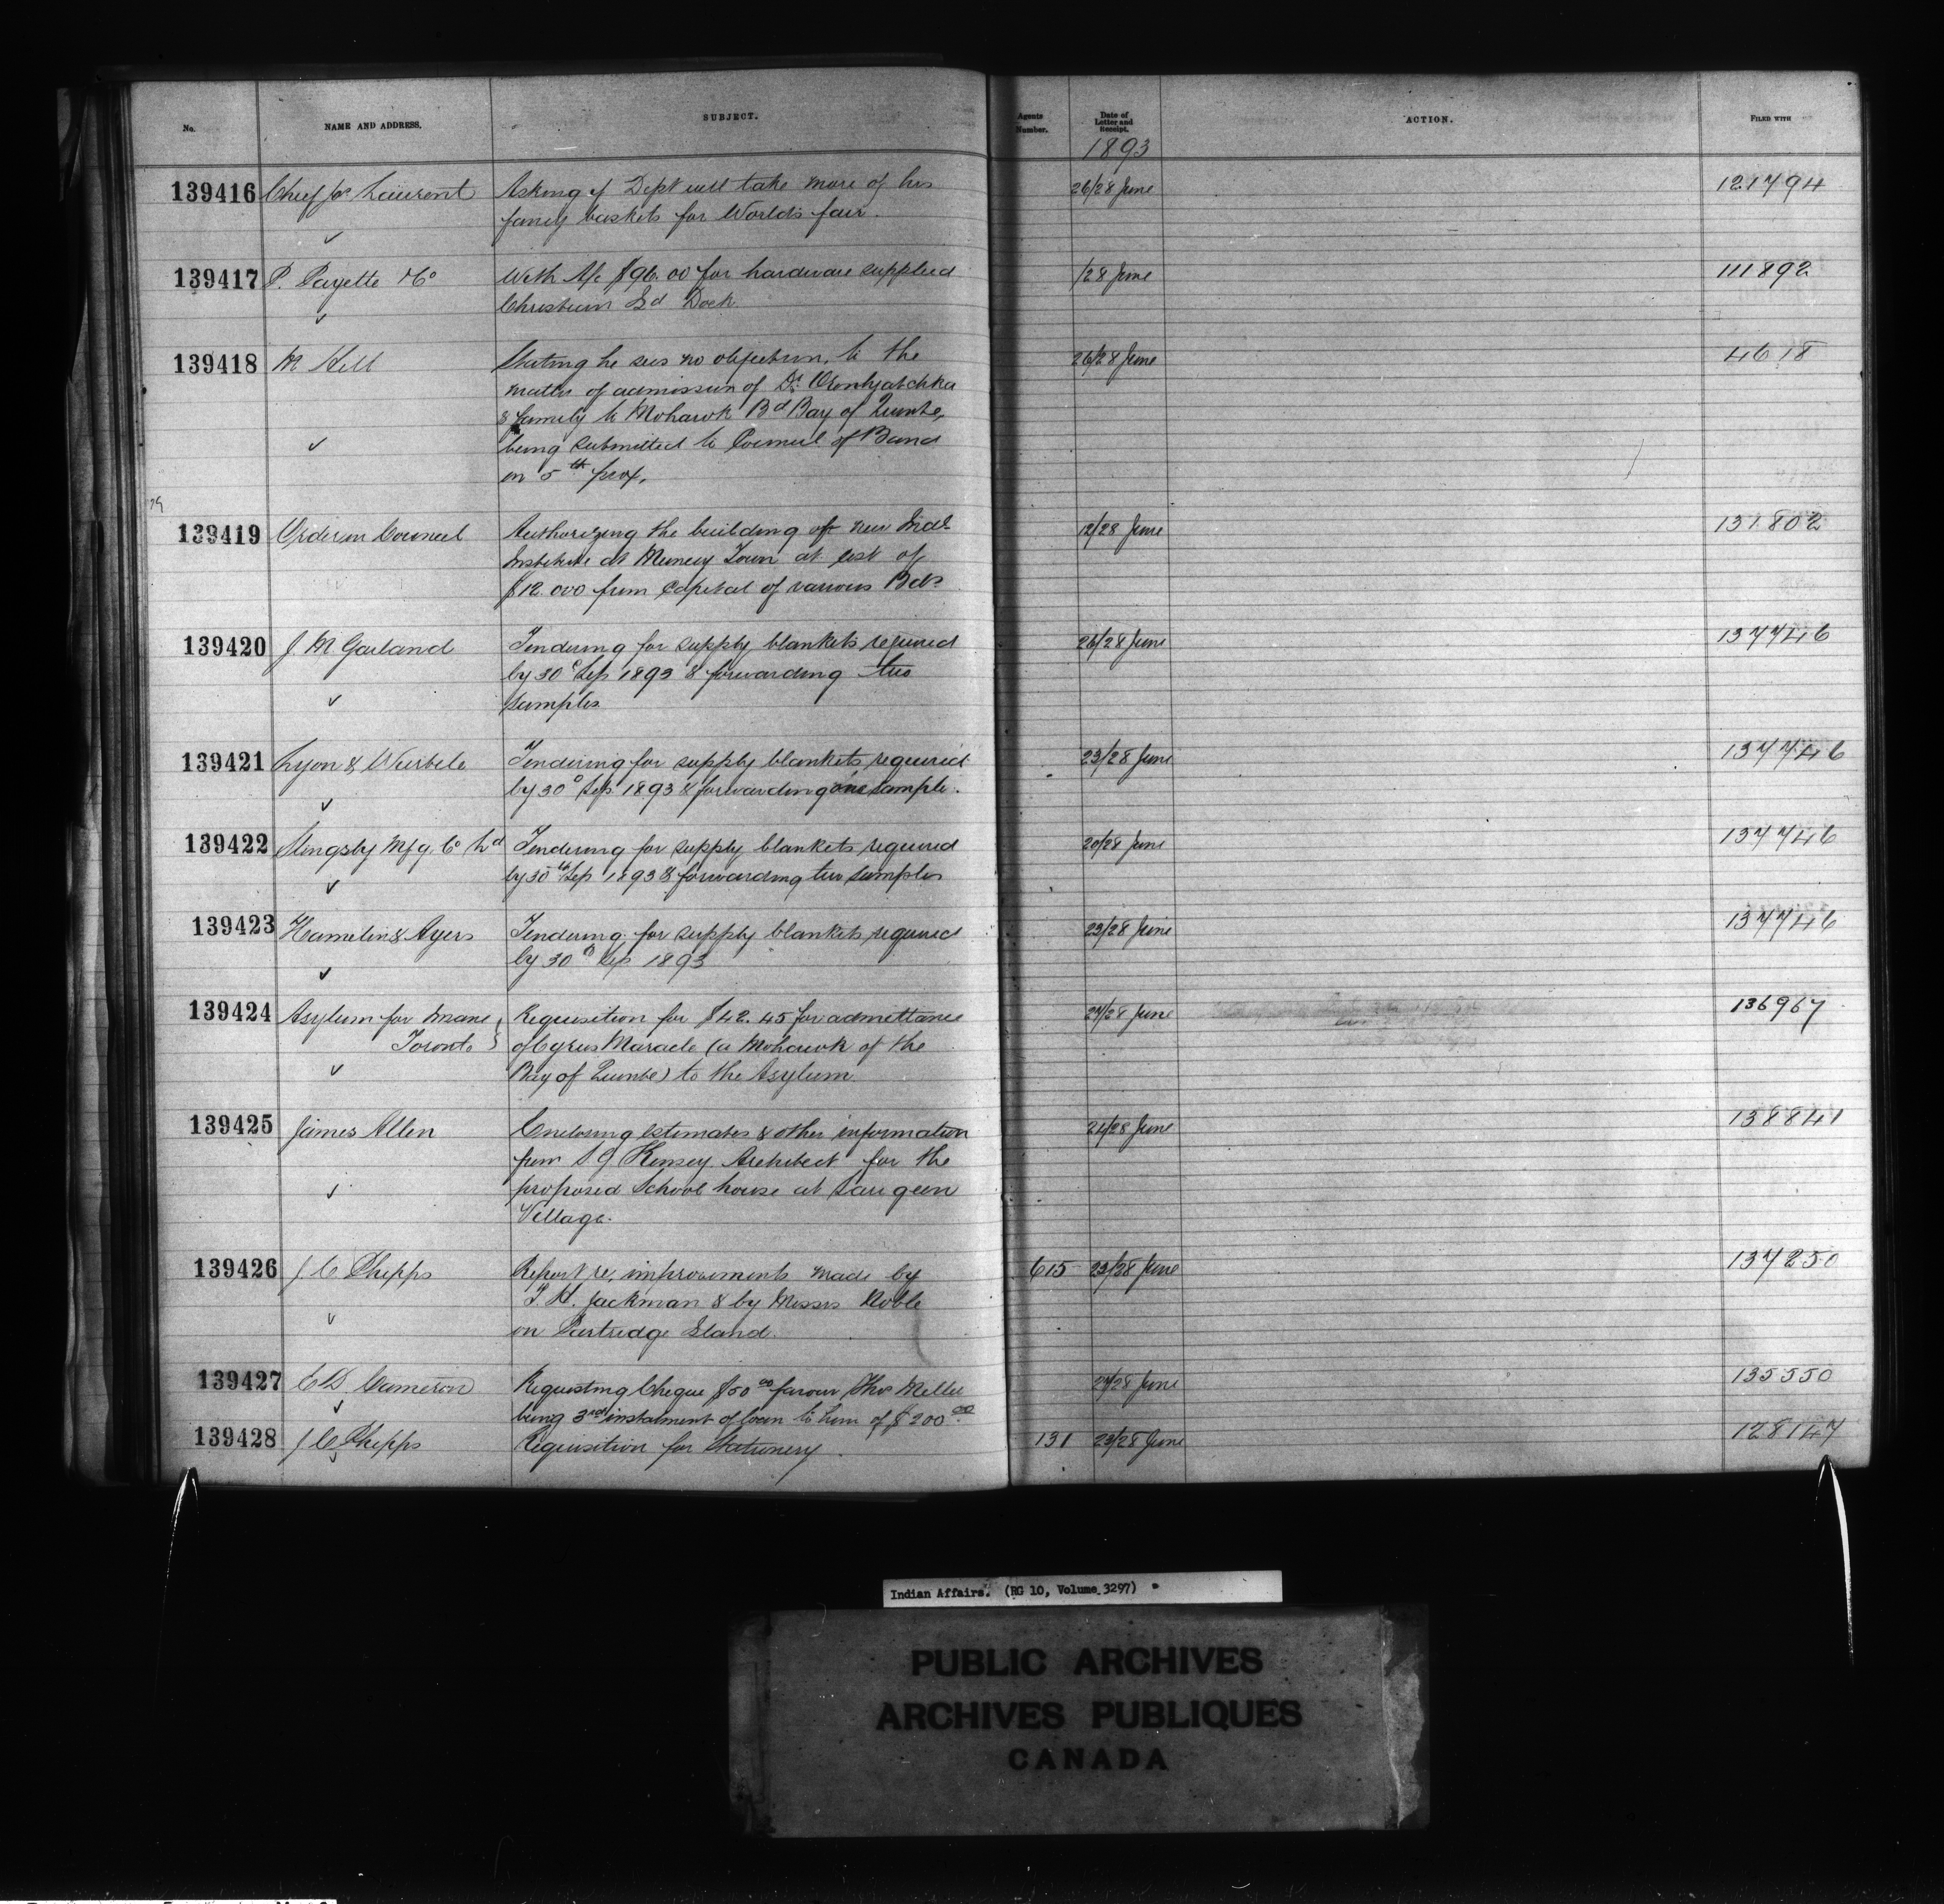 No.
NAME AND ADDRESS.
SUBJECT.
Agents Number.
Date of Letter and Receipt.
ACTION.
FILED WITH
1893
139416 Chief Jos Laurent Asking if Dept will take more of his 26/28 June 121794
fancy baskets for Worlds fair.
139417 P. Payette & Co With A/c $96.00 for hardware supplied /28 June 111892
Christian Isd Dock
139418 M Hill Stating he sees no objection, to the 26/28 June 4618
matter of admission of Dr Oronhyatekha
& family to Mohawk Bd Bay of Quinte,
being submitted to Council of Band
on 5th prox.
139419 Order in Council Authorizing the building of new Indl 12/28 June 131802
Institute at Muncey Town at cost of
$12.000 from Capital of various Bds
139420 J. M Garland Tendering for supply blankets required 26/28 June 137746
by 30 Sep 1893 & forwarding two
samples
139421 Lyon & Wurtele Tendering for supply blankets required 23/28 June 137746
by 30 Sep 1893 & forwarding one sample.
139422 Slingsby Mfg Co Ld Tendering for supply blankets required 20/28 June 137746
by 30th Sep 1893 & forwarding two samples
139423 Hamelin & Ayers Tendering for supply blankets required 23/28 June 137746
by 30 Sep 1893
139424 Asylum for Insane Requisition for $42.45 for admittance 27/28 June 136967
Toronto of Cyrus Maracle (a Mohawk of the
Bay of Quinte) to the Asylum
139425 James Allen Enclosing estimates & other information 24/28 June 138841
from Kinsey Architect for the
proposed School house at Saugeen
Village.
139426 J C Phipps Report re, improvements made by 615 23/28 June 137250
T. H. Jackman & by Messrs Noble
on Partridge Island.
139427 E D. Cameron Requesting Cheque $50 00 favour Thos Miller 27/28 June 135550
being 3rd instalment of loan to him of $200 00
139428 J C Phipps Requisition for Stationery. 131 23/28 June 128147
Indian Affairs. (RG 10, Volume 3297)
PUBLIC ARCHIVES
ARCHIVES PUBLIQUES
CANADA